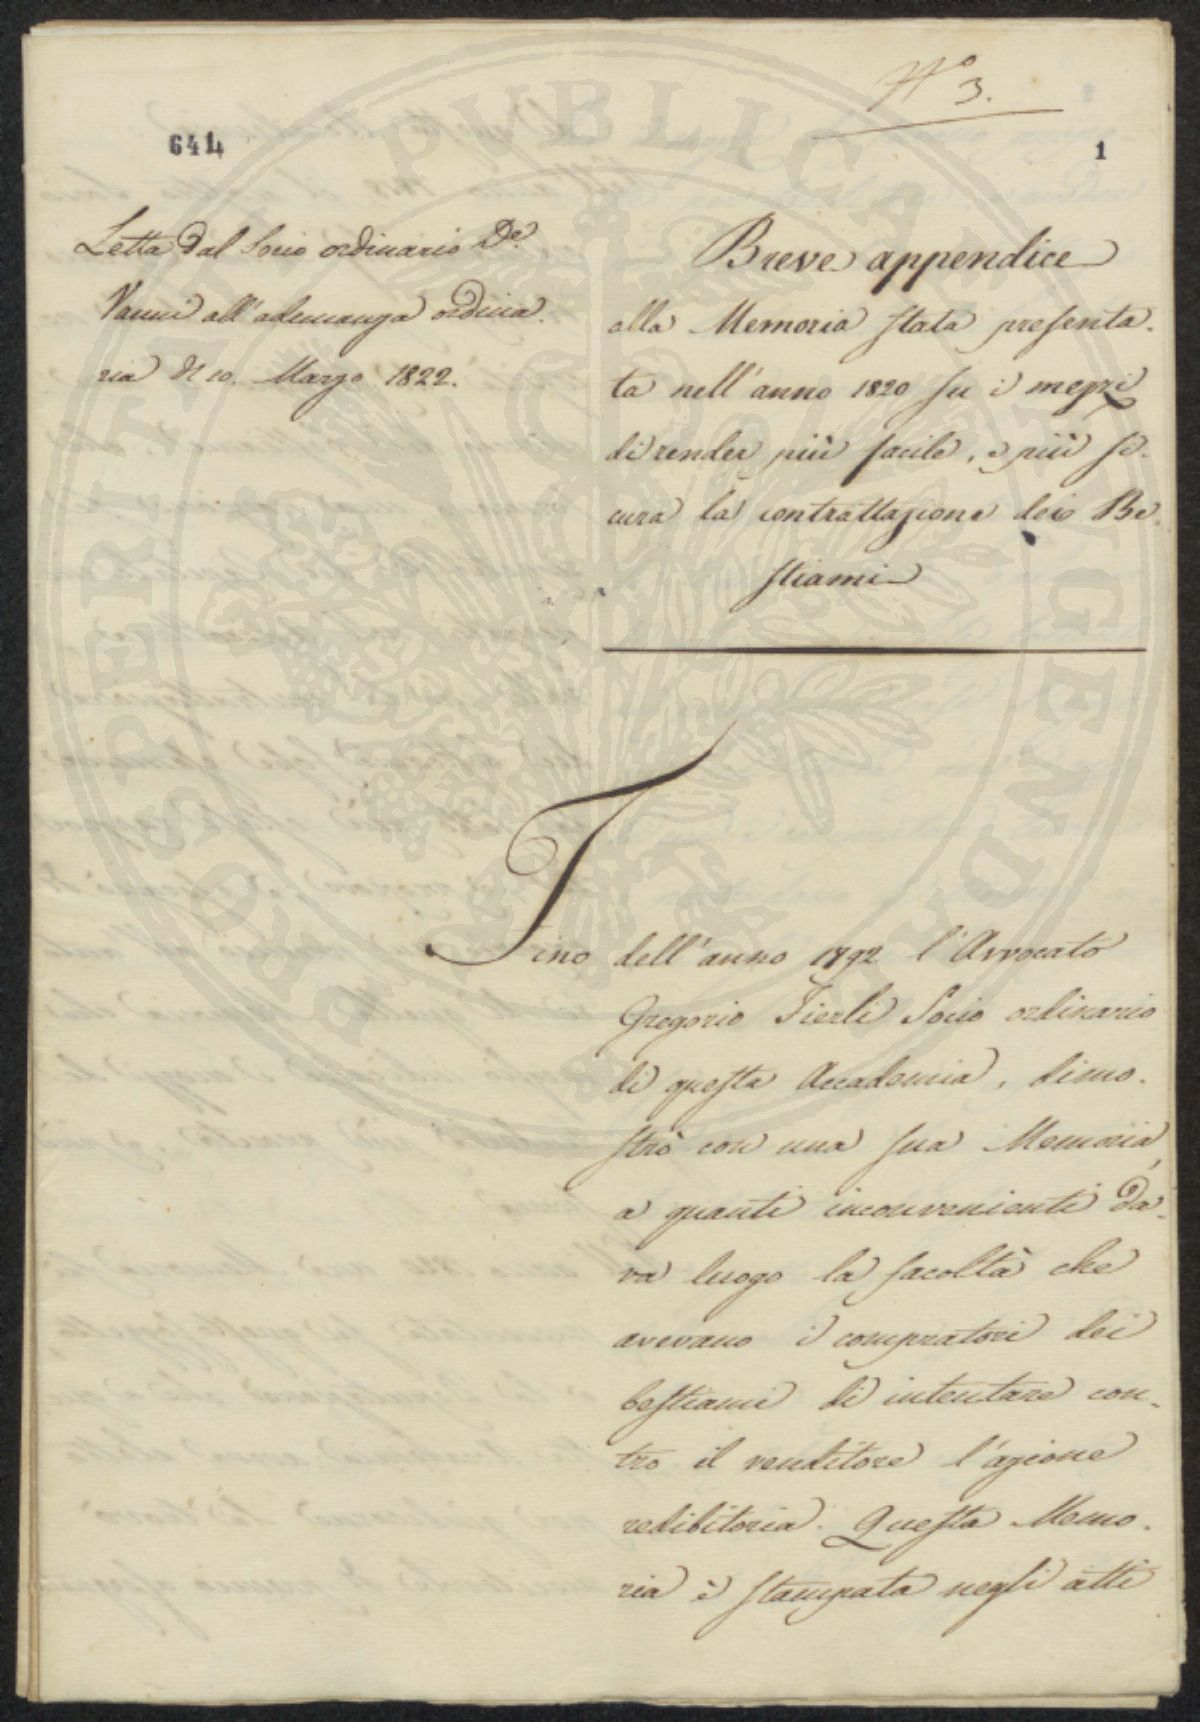 N.º 3.
641
1
Letta dal Socio ordinario De.
Vanni all'adunanza ordina.
ria de 10. Marzo 1822.
Breve appendice
alla Memoria stata presenta.
ta nell'anno 1820 su i mezzi
di render più facile, e più si.
cura la contrattazione dei Be.
stiami
Fino dell'anno 1792 l'Avvocato
Gregorio Fierli Socio ordinario
di questa Accademia, dimo.
strò con una sua Memoria,
a quanti inconvenienti da.
va luogo la facoltà che
avevano i compratori dei
bestiami di intentare con.
tro il venditore l'azione
redibitoria. Questa Memo.
ria è stampata negli atti
PROSPERITATI PUBLICAE AUGENDAE